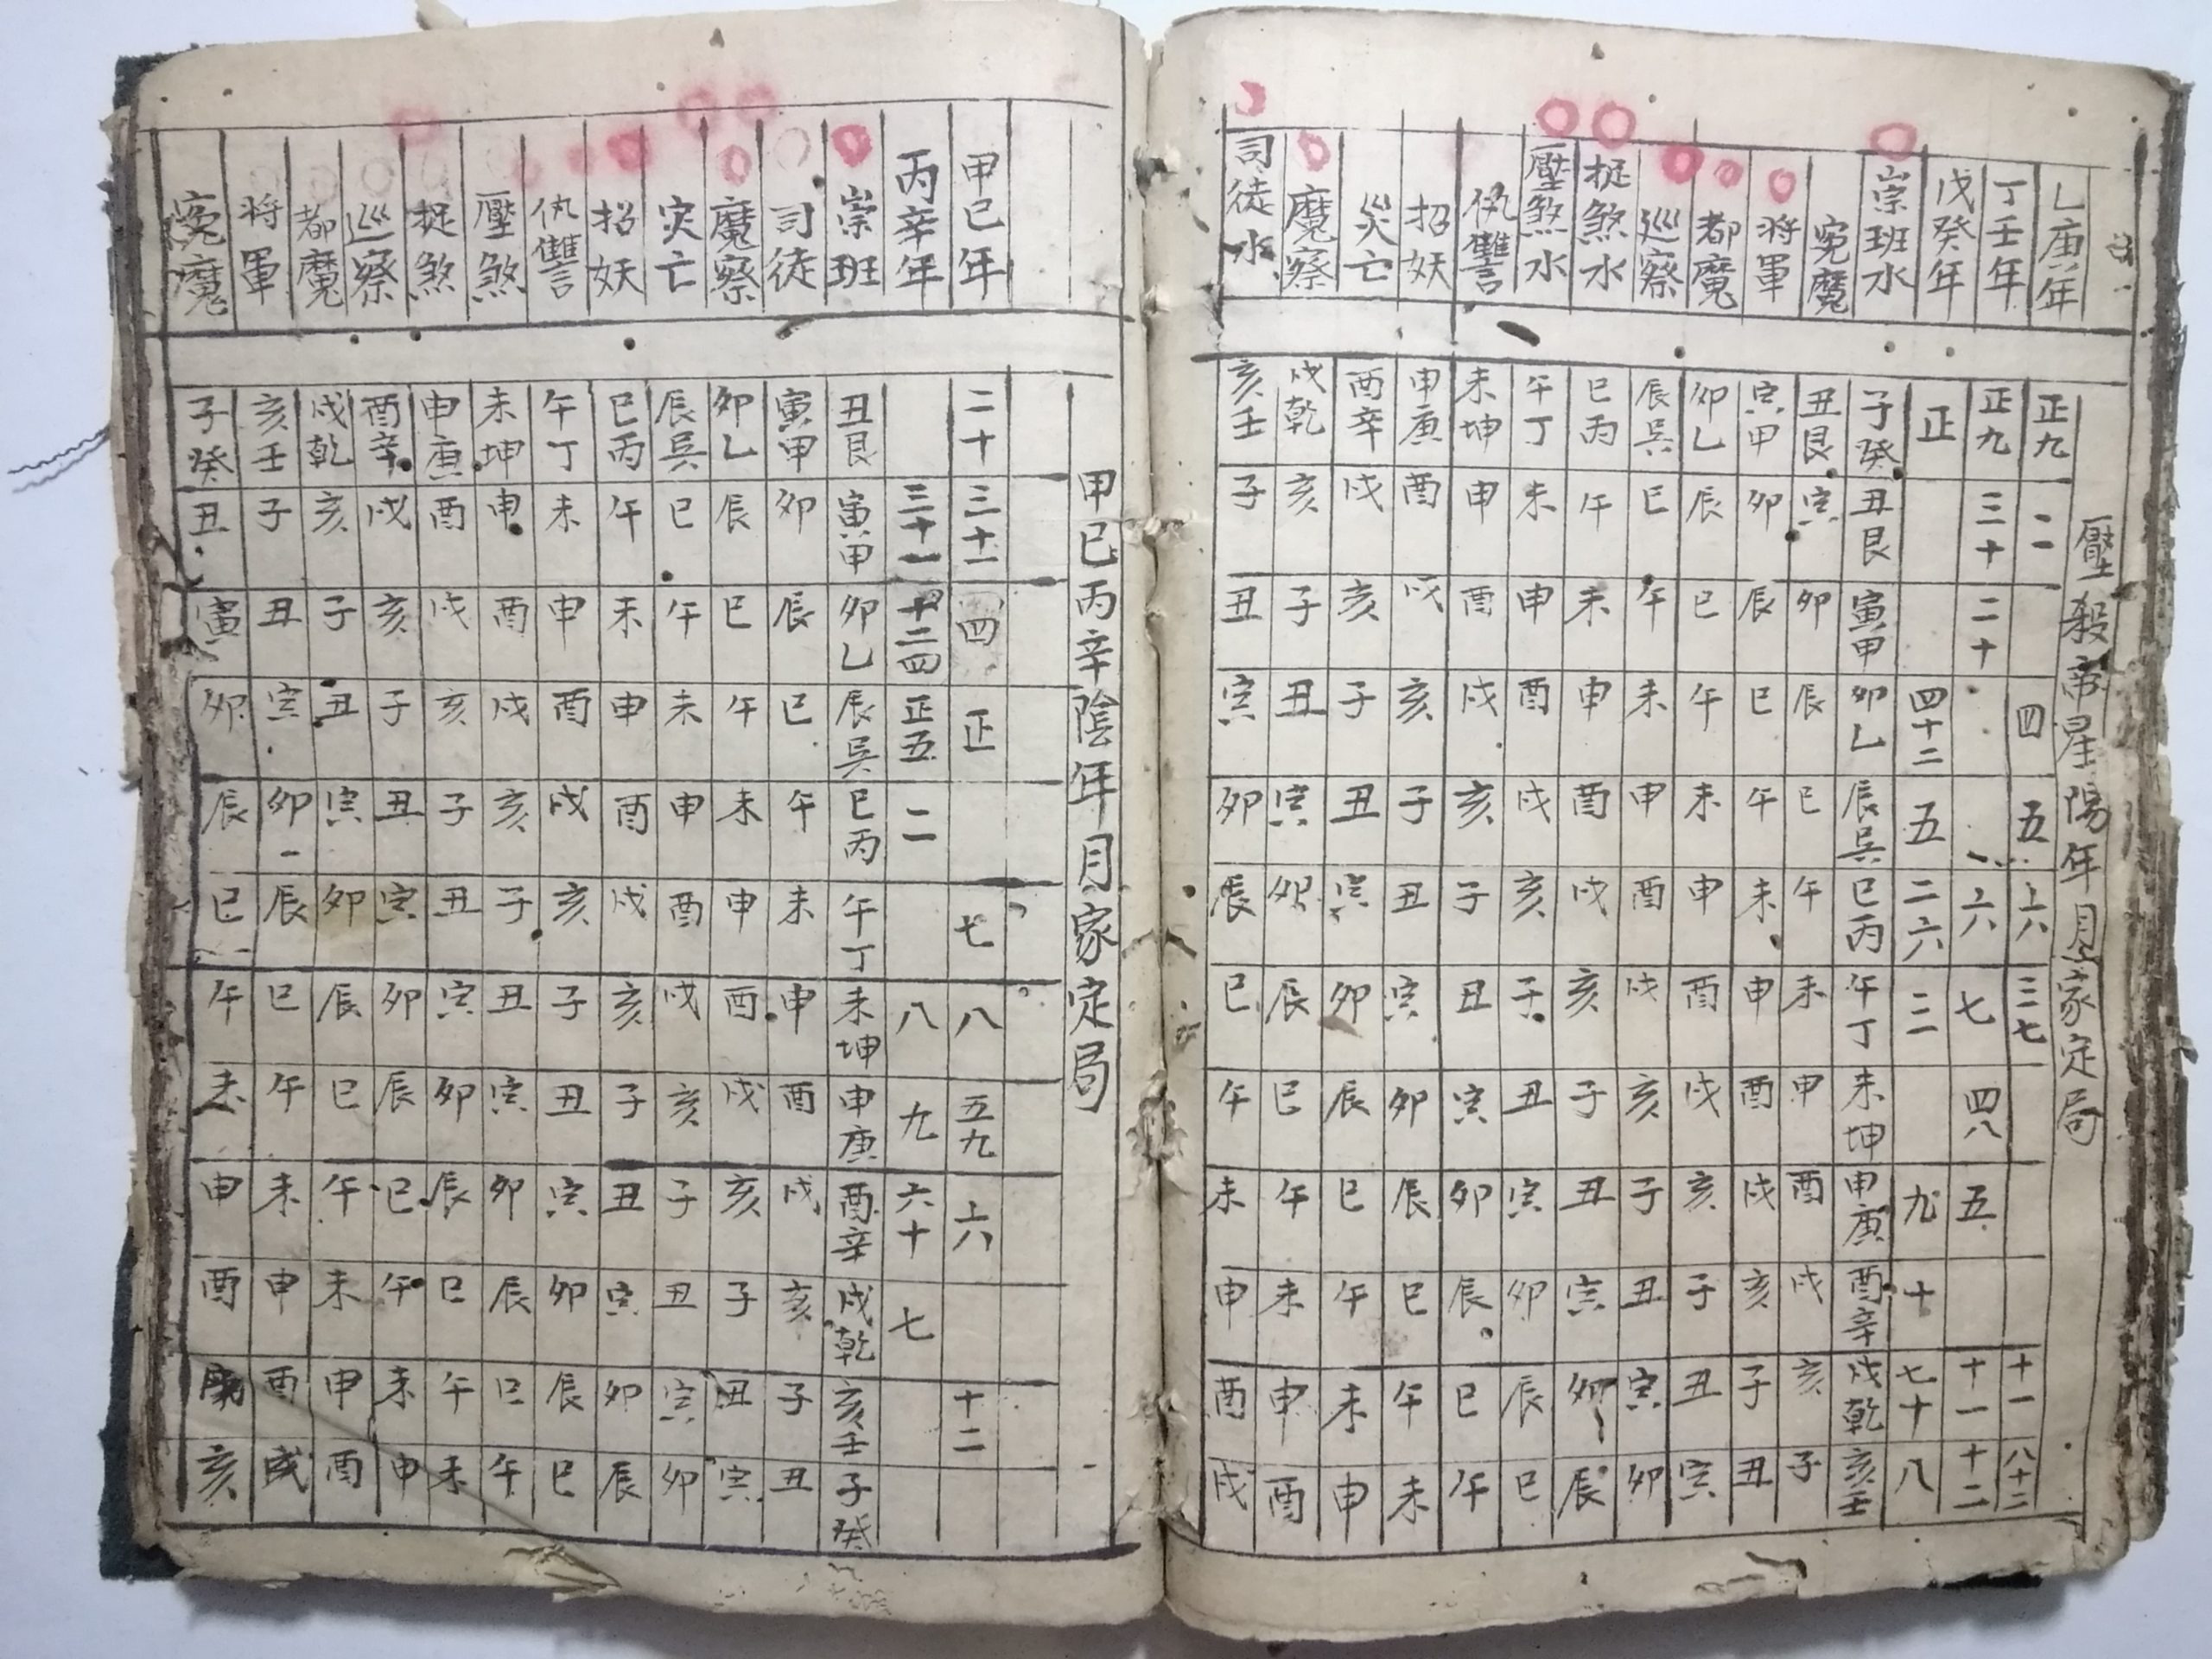 壓殺帝星陽年月家定局
乙庚年 正九 二 四 五 六 三七 十一 八十二
丁壬年 正九 三十 二十 六 七 四八 五 十一 十二
戊癸年 正 四十二 五 二六 三 九 十 七十 八
崇班水 子癸 丑艮 寅甲 卯乙 辰巽 巳丙 午丁 未坤 申庚 酉辛 戌乾 亥壬
寃魔 丑艮 寅 卯 辰 巳 午 未 申 酉 戌 亥 子
将軍 寅甲 卯 辰 巳 午 未 申 酉 戌 亥 子 丑
都魔 卯乙 辰 巳 午 未 申 酉 戌 亥 子 丑 寅
巡察 辰巽 巳 午 未 申 酉 戌 亥 子 丑 寅 卯
捉煞水 巳丙 午 未 申 酉 戌 亥 子 丑 寅 卯 辰
壓煞水 午丁 未 申 酉 戌 亥 子 丑 寅 卯 辰 巳
仇讐 未坤 申 酉 戌 亥 子 丑 寅 卯 辰 巳 午
招妖 申庚 酉 戌 亥 子 丑 寅 卯 辰 巳 午 未
災亡 酉辛 戌 亥 子 丑 寅 卯 辰 巳 午 未 申
魔察 戌乾 亥 子 丑 寅 卯 辰 巳 午 未 申 酉
司徒水 亥壬 子 丑 寅 卯 辰 巳 午 未 申 酉 戌
甲巳丙辛陰年月家定局
甲巳年 二十 三十一 四 正 七 八 五九 六 十二
丙辛年 三十一 十二四 正五 二 八 九 六十 七
崇班 丑艮 寅甲 卯乙 辰巽 巳丙 午丁 未坤 申庚 酉辛 戌乾 亥壬 子癸
司徒 寅甲 卯 辰 巳 午 未 申 酉 戌 亥 子 丑
魔察 卯乙 辰 巳 午 未 申 酉 戌 亥 子 丑 寅
灾亡 辰巽 巳 午 未 申 酉 戌 亥 子 丑 寅 卯
招妖 巳丙 午 未 申 酉 戌 亥 子 丑 寅 卯 辰
仇讐 午丁 未 申 酉 戌 亥 子 丑 寅 卯 辰 巳
壓煞 未坤 申 酉 戌 亥 子 丑 寅 卯 辰 巳 午
捉煞 申庚 酉 戌 亥 子 丑 寅 卯 辰 巳 午 未
巡察 酉辛 戌 亥 子 丑 寅 卯 辰 巳 午 未 申
都魔 戌乾 亥 子 丑 寅 卯 辰 巳 午 未 申 酉
将軍 亥壬 子 丑 寅 卯 辰 巳 午 未 申 酉 戌
寃魔 子癸 丑 寅 卯 辰 巳 午 未 申 酉 亥